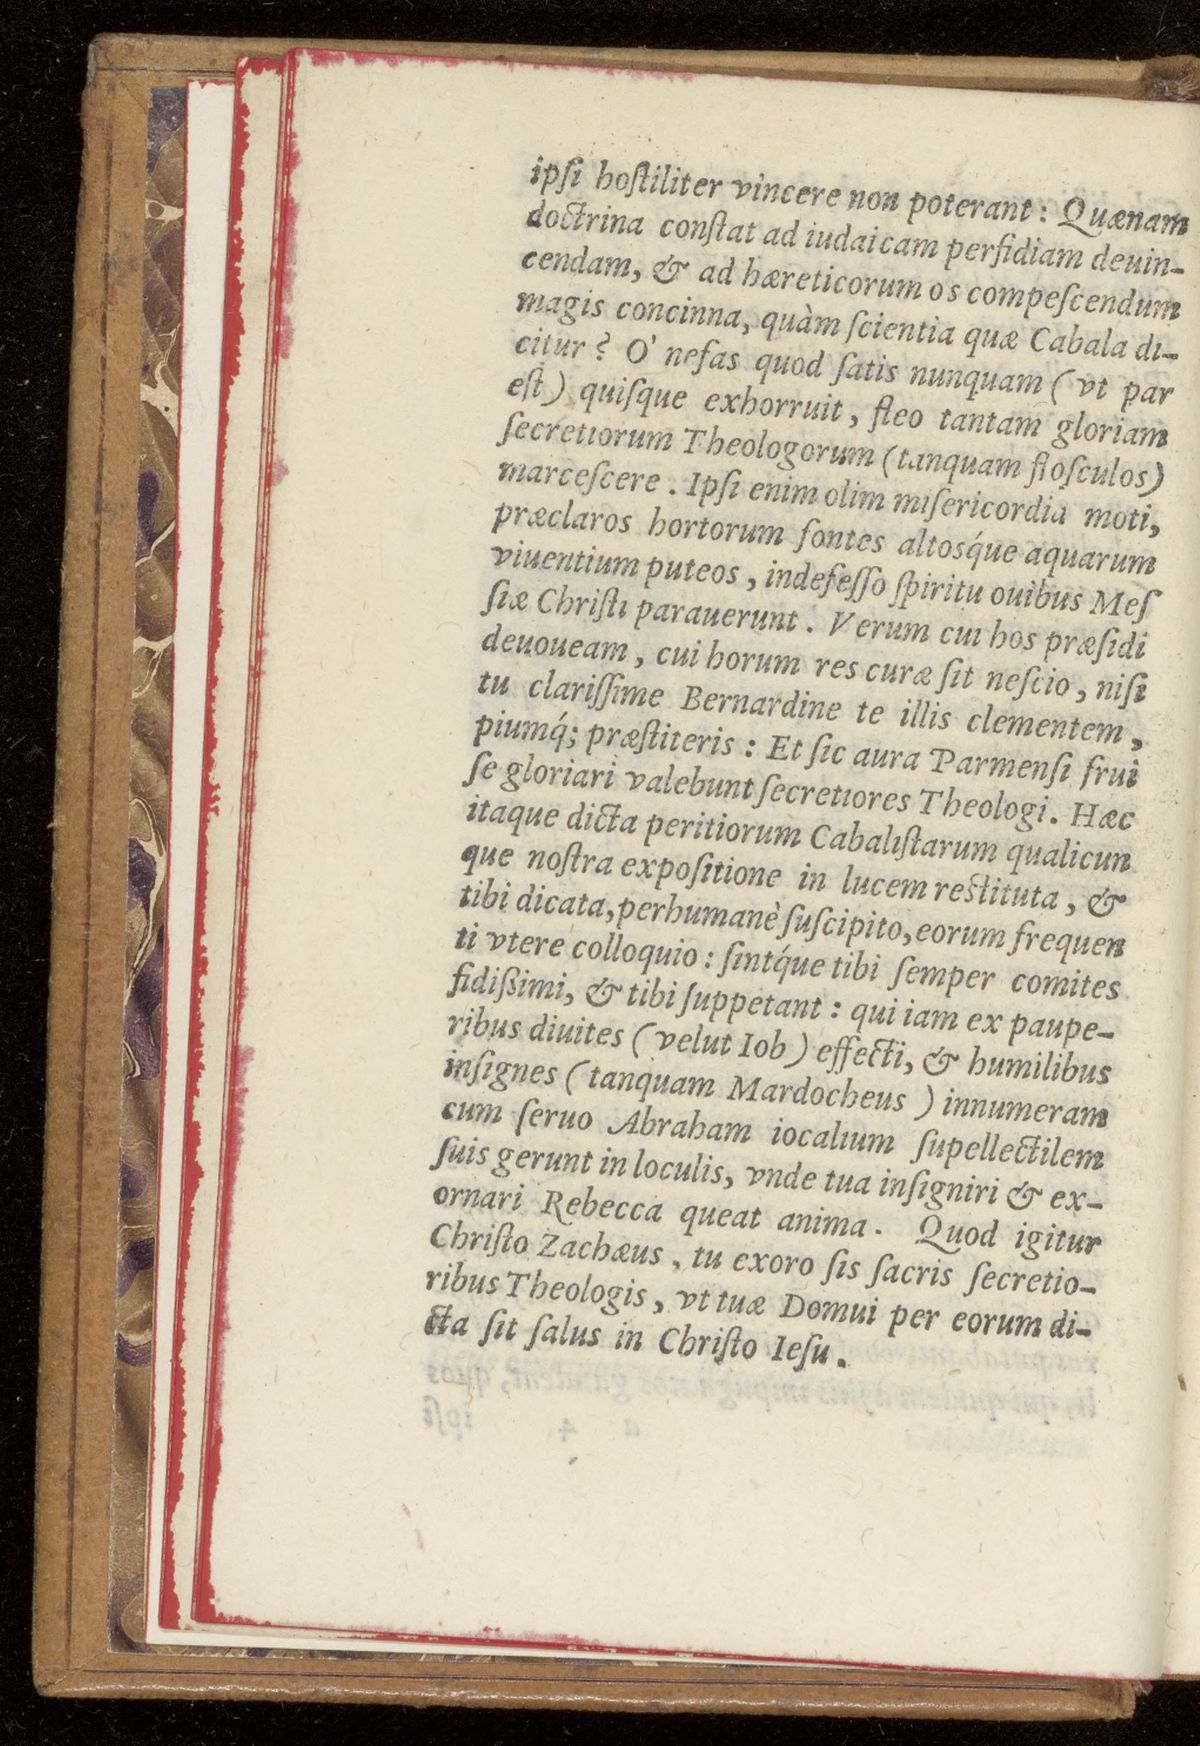 ipſi hoſtiliter vincere non poterant: Quænam
doctrina conſtat ad iudaicam perfidiam deuin-
cendam, & ad hæreticorum os compeſcendum
magis concinna, quàm ſcientia quæ Cabala di-
citur? O' nefas quod ſatis nunquam (vt par
eſt) quiſque exhorruit, fleo tantam gloriam
ſecretiorum Theologorum (tanquam floſculos)
marceſcere. Ipſi enim olim miſericordia moti,
præclaros hortorum fontes altosq́ue aquarum
viuentium puteos, indefeſſo ſpiritu ouibus Meſ
ſiæ Chriſti parauerunt. Verum cui hos præſidi
deuoueam, cui horum res curæ ſit neſcio, niſi
tu clariſſime Bernardine te illis clementem,
piumq́; præſtiteris: Et ſic aura Parmenſi frui
ſe gloriari valebunt ſecretiores Theologi. Hæc
itaque dicta peritiorum Cabaliſtarum qualicun
que noſtra expoſitione in lucem reſtituta, &
tibi dicata, perhumanè ſuſcipito, eorum frequen
ti vtere colloquio: ſintq́ue tibi ſemper comites
fidißimi, & tibi ſuppetant: qui iam ex paupe-
ribus diuites (velut Iob) effecti, & humilibus
inſignes (tanquam Mardocheus) innumeram
cum ſeruo Abraham iocalium ſupellectilem
ſuis gerunt in loculis, vnde tua inſigniri & ex-
ornari Rebecca queat anima. Quod igitur
Chriſto Zachæus, tu exoro ſis ſacris ſecretio-
ribus Theologis, vt tuæ Domui per eorum di-
cta ſit ſalus in Chriſto Ieſu.